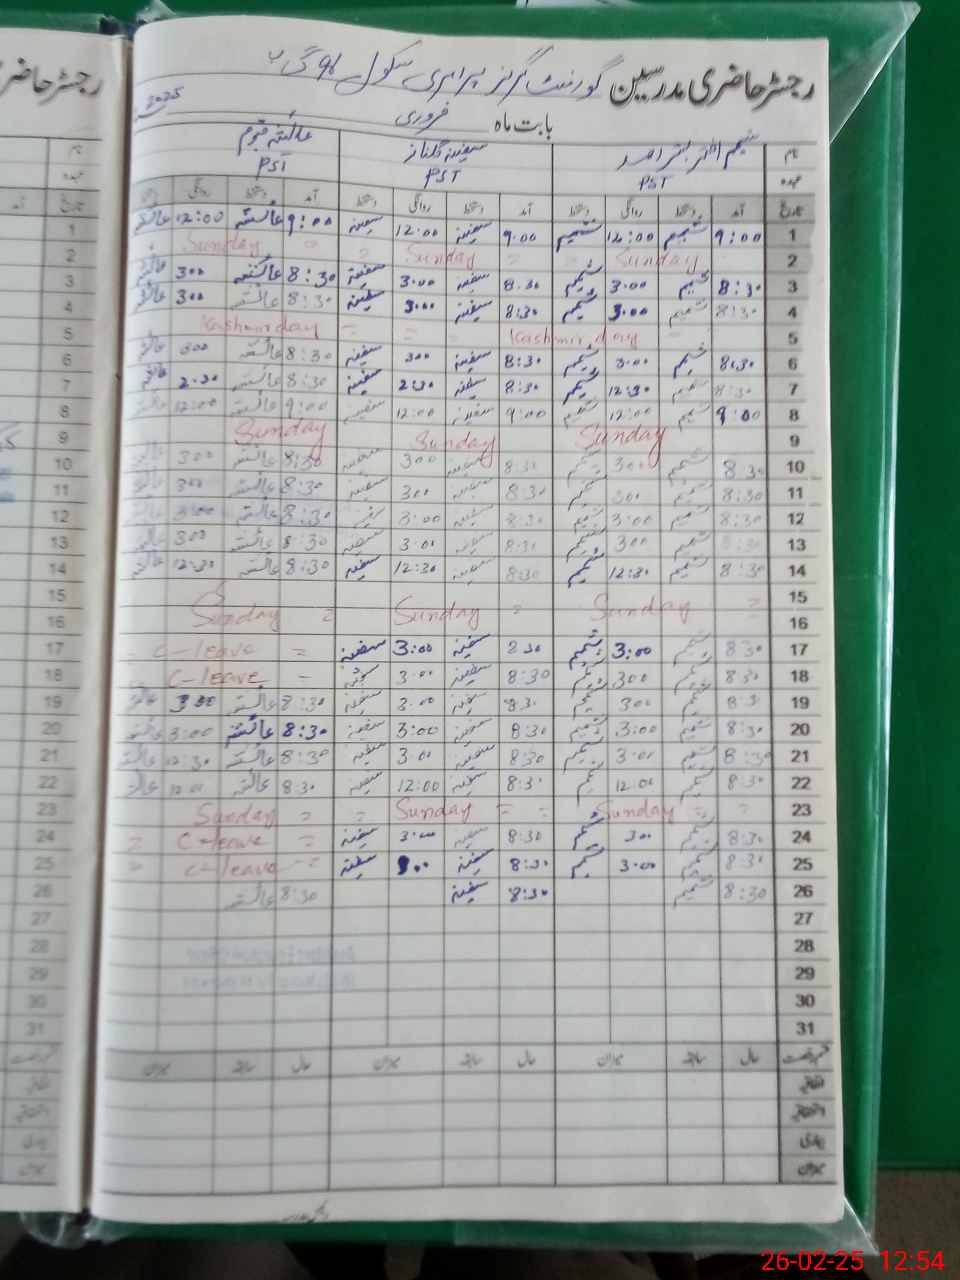 رجسٹر حاضری مدرسین گورنمنٹ گرلز پرائمری سکول
بابت ماہ فروری 2025
نام شمیم اختر سفینہ گلناز عائشہ قیوم
عہدہ PST PST PST
تاریخ آمد دستخط روانگی دستخط آمد دستخط روانگی دستخط آمد دستخط روانگی
1 9:00 شمیم 12:00 شمیم 9:00 سفینہ 12:00 سفینہ 9:00 عائشہ 12:00 عائشہ
2 Sunday Sunday = Sunday
3 8:30 شمیم 3:00 شمیم 8:30 سفینہ 3:00 سفینہ 8:30 عائشہ 300 عائشہ
4 8:30 شمیم 3:00 شمیم 8:30 سفینہ 3:00 سفینہ 8:30 عائشہ 300 عائشہ
5 Kashmir day = = Kashmir day
6 8:30 شمیم 3:00 شمیم 8:30 سفینہ 300 سفینہ 8:30 عائشہ 300 عائشہ
7 8:30 شمیم 12:30 شمیم 8:30 سفینہ 2:30 سفینہ 8:30 عائشہ 2:30 عائشہ
8 9:00 شمیم 12:00 شمیم 9:00 سفینہ 12:00 سفینہ 9:00 عائشہ 12:00 عائشہ
9 Sunday Sunday Sunday
10 8:30 شمیم 300 شمیم 8:30 سفینہ 300 سفینہ 8:30 عائشہ 300 عائشہ
11 8:30 شمیم 300 شمیم 8:30 سفینہ 300 سفینہ 8:30 عائشہ 300 عائشہ
12 8:30 شمیم 3:00 شمیم 8:30 سفینہ 3:00 سفینہ 8:30 عائشہ 3:00 عائشہ
13 8:30 شمیم 300 شمیم 8:30 سفینہ 3:00 سفینہ 8:30 عائشہ 300 عائشہ
14 8:30 شمیم 12:30 شمیم 8:30 سفینہ 12:30 سفینہ 8:30 عائشہ 12:30 عائشہ
15
16 = Sunday = Sunday = Sunday
17 8:30 شمیم 3:00 شمیم 8:30 سفینہ 3:00 سفینہ = C-leave -
18 8:30 شمیم 300 شمیم 8:30 سفینہ 3:00 سفینہ = C-leave
19 8:30 شمیم 300 شمیم 8:30 سفینہ 3:00 سفینہ 8:30 عائشہ 3:00 عائشہ
20 8:30 شمیم 3:00 شمیم 8:30 سفینہ 3:00 سفینہ 8:30 عائشہ 3:00 عائشہ
21 8:30 شمیم 3:00 شمیم 8:30 سفینہ 3:00 سفینہ 8:30 عائشہ 12:30 عائشہ
22 8:30 شمیم 12:00 شمیم 8:30 سفینہ 12:00 سفینہ 8:30 عائشہ 12:00 عائشہ
23 = Sunday = = Sunday = = Sunday
24 8:30 شمیم 300 شمیم 8:30 سفینہ 3:00 سفینہ = C-leave =
25 8:30 شمیم 3:00 شمیم 8:30 سفینہ سفینہ = C-leave =
26 8:30 شمیم 8:30 سفینہ 8:30 عائشہ
27
28
29
30
31
قسم رخصت حال سابقہ میزان حال سابقہ میزان حال سابقہ میزان
اتفاقیہ
استحقاقیہ
بیماری
میزان
26-02-25 12:54